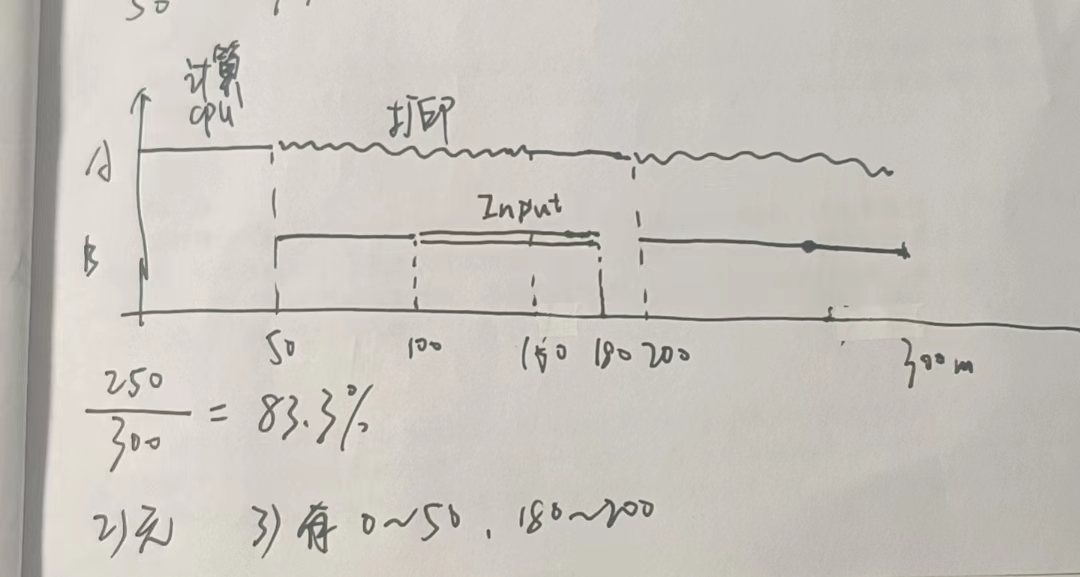 50
计算
cpu
打印
A
Input
B
50 100 150 180 200 300 m
250
300
= 83.3%
2) 无 3) 有 0~50, 180~200